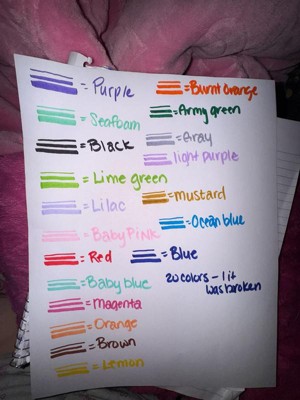 = Purple
= Seafoam
= Black
= Lime green
= Lilac
= Baby Pink
= Red
= Baby blue
= magenta
= Orange
= Brown
= Lemon
= Burnt Orange
= Army green
= Gray
= light purple
= mustard
= Ocean blue
= Blue
20 colors - 1 it
was broken